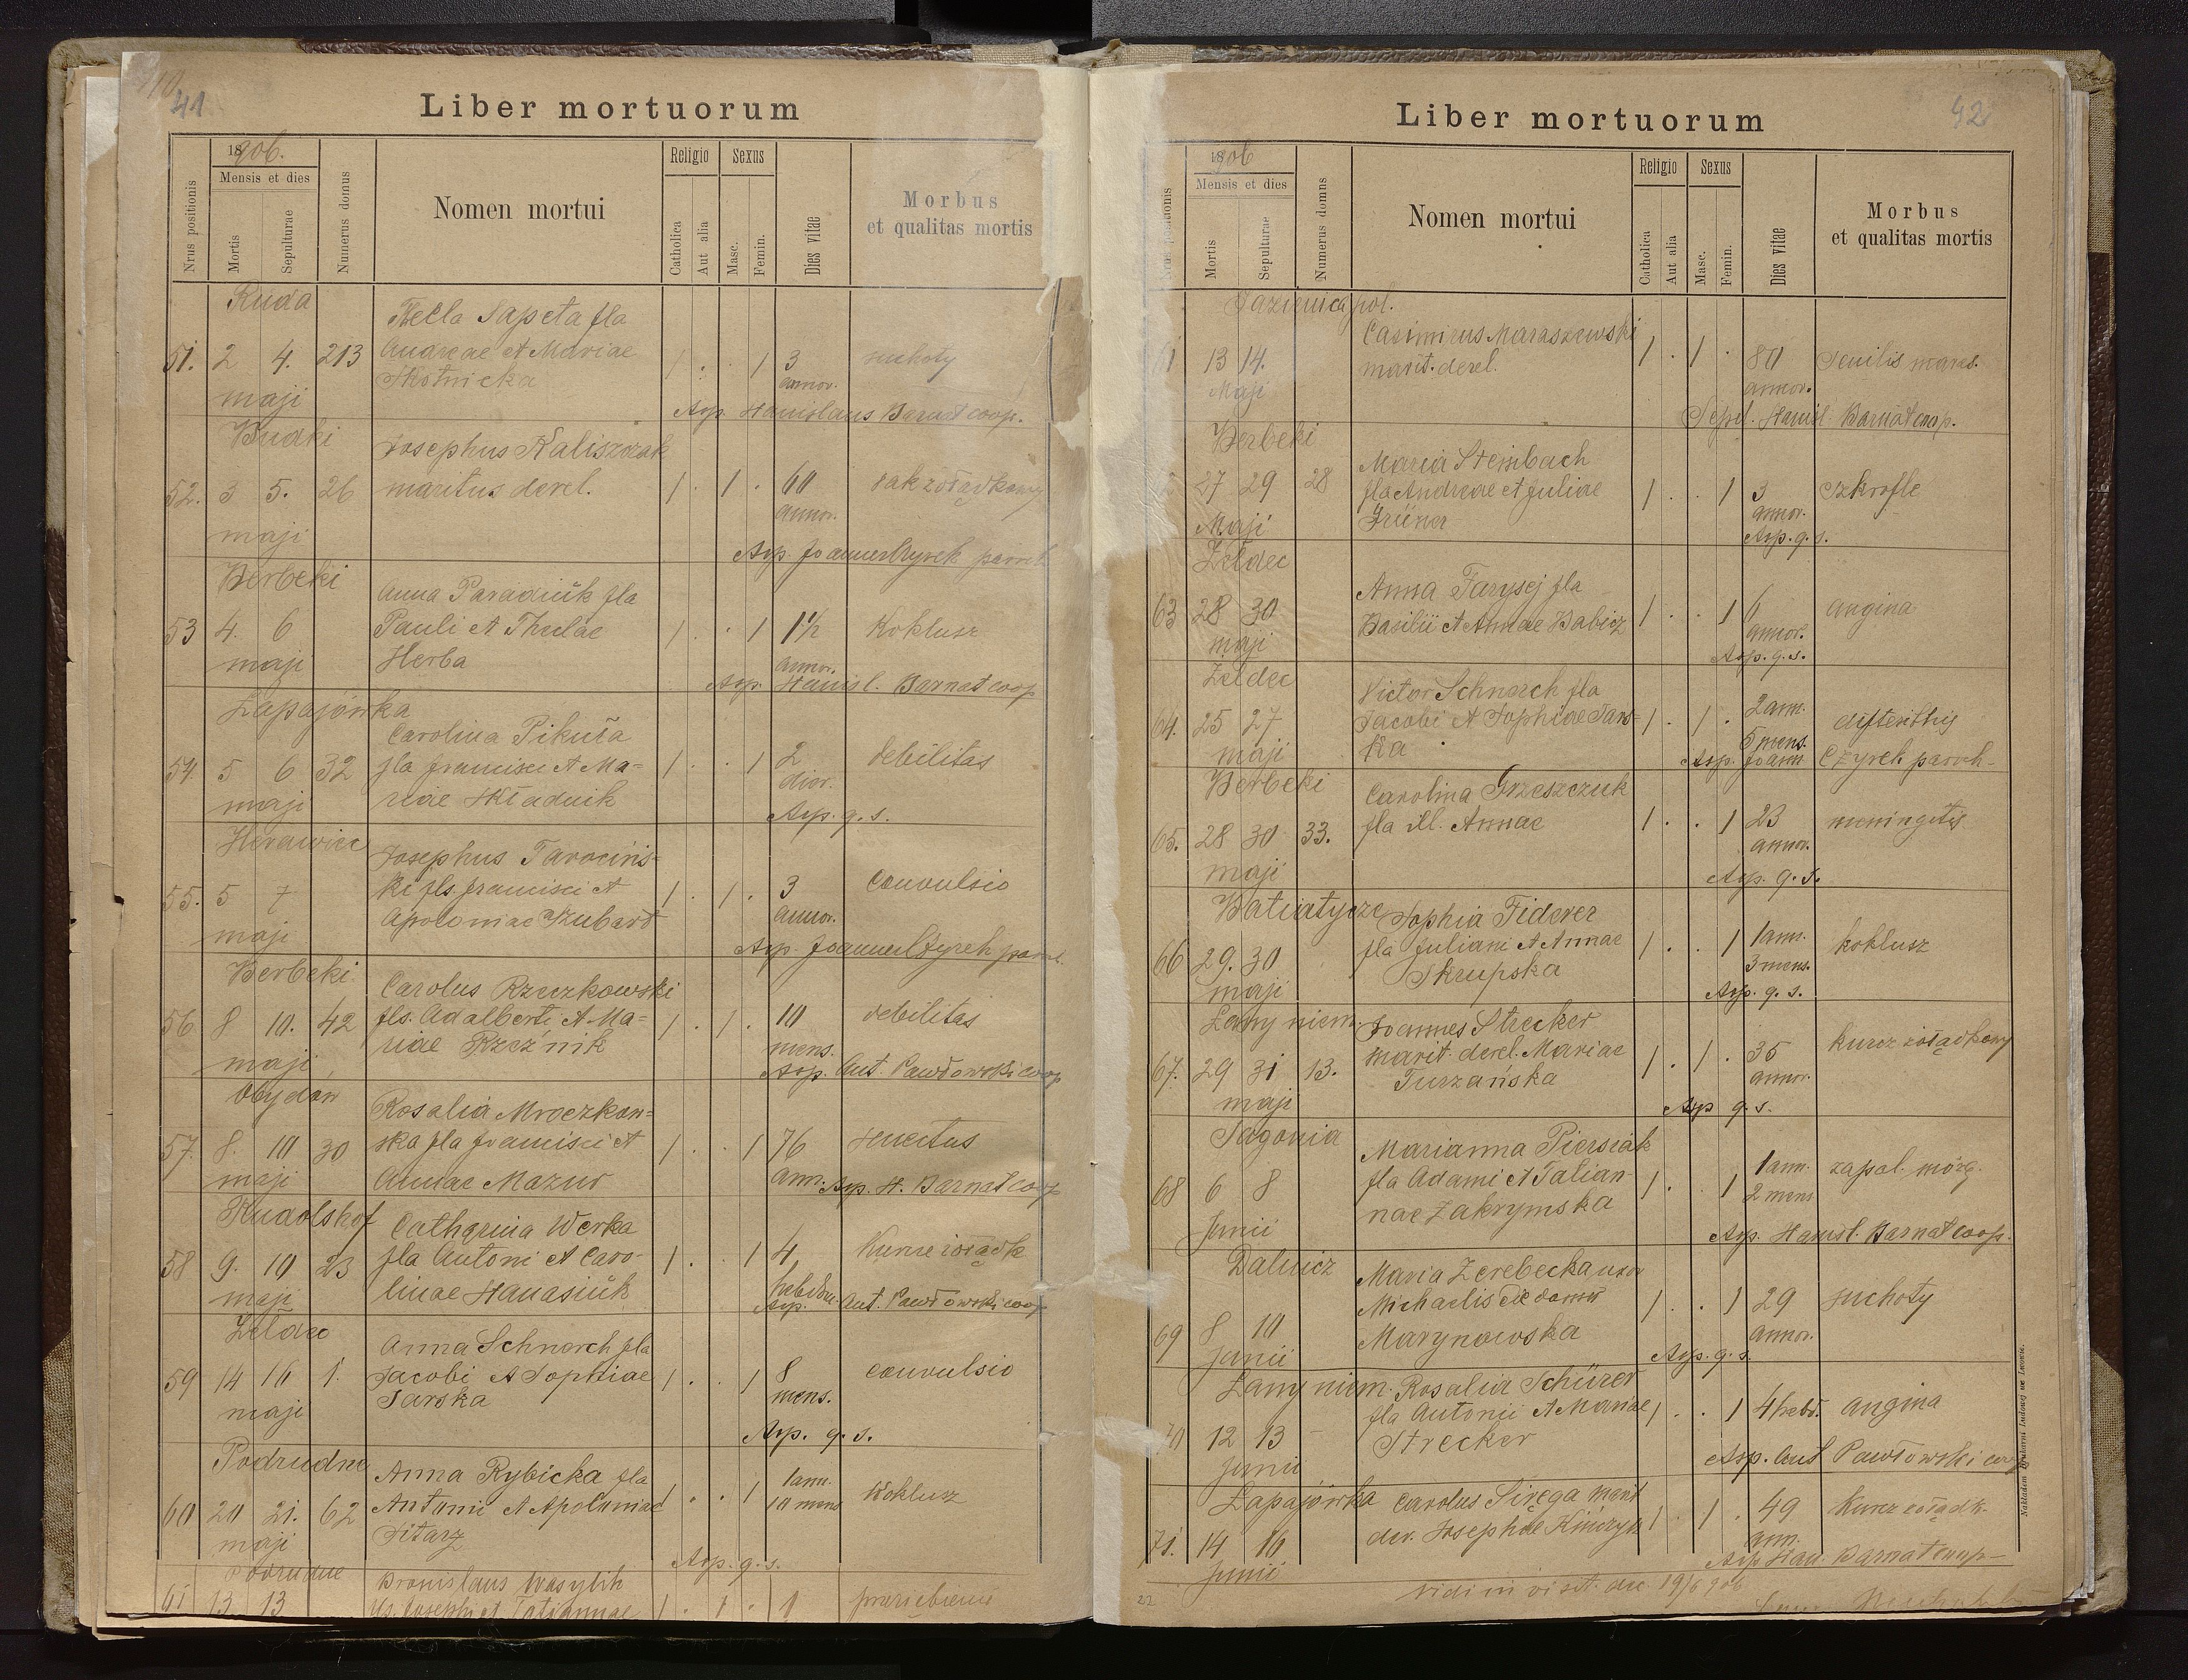 41
Liber mortuorum
Nrus positionis
1906.
Mensis et dies
Mortis
Sepulturae
Numerus domus
Nomen mortui
Religio
Catholica
Aut alia
Sexus
Masc.
Femin.
Dies vitae
Morbus
et qualitas mortis
Ruda
Thecla Sapeta fla
51. 2 4. 213 Andreae et Mariae 1 . . 1 3 suchoty
Skotnicka annor.
maji
Asp. Stanislaus Barnat coop.
Budki
Josephus Kaliszczak
52. 3 5. 26 maritus derel. 1 . 1 . 60 rak żołądkowy
annor.
maji
Asp. Joannes Czyrek paroch
Berbeki
Anna Paradiuk fla
53 4. 6 Pauli et Theclae 1 . . 1 1½ Koklusz
maji Herba annor.
Asp. Stanisl. Barnat coop
Łapajówka
Carolina Pikuła
54 5 6 32 fla Francisci et Ma= 1 . . 1 2 debilitas
dier.
maji riae Składnik
Asp. q. s.
Herawiec
Josephus Tarocińs=
55. 5 7 ki fls. Francisci et 1 . 1 . 3 convulsio
maji Apoloniae Szubart annor.
Asp. Joannes Czyrek paroch.
Berbeki
Carolus Rzeczkowski
56 8 10. 42 fls. Adalberti et Ma= 1 . 1 . 10 debilitas
maji riae Rzeźnik mens.
Asp. Ant. Pawłowski coop
Obydów
Rosalia Mroczkow=
57. 8. 10 30 ska fla Francisci et 1 . . 1 76 senectus
maji Annae Mazur ann.
Asp. St. Barnat coop
Rudolshof
Catharina Werka
58 9. 10 23 fla Antoni et Caro- 1 . . 1 4 Kurcz żołądk
maji linae Hanasiuk hebdom.
Asp. Ant. Pawłowski coop
Żeldec
Anna Schnorch fla
59 14 16 1. Jacobi et Sophiae 1 . . 1 8 convulsio
maji Tarska mens.
Asp. q. s.
Podrudne
Anna Rybicka fla 1 ann.
60 20 21. 62 Antonii et Apoloniae 1 . . 1 10 mens Koklusz
maji Sitarz
Asp. q. s.
Podrudne
Bronislaus Wasylik
61 13 13 fls. Josephi et Tatiannae 1 . 1 . 1 przeziębienie
42
Liber mortuorum
Nrus positionis
1906
Mensis et dies
Mortis
Sepulturae
Numerus domus
Nomen mortui
Religio
Catholica
Aut alia
Sexus
Masc.
Femin.
Dies vitae
Morbus
et qualitas mortis
Jazienica pol.
Casimirus Maraszewski
61 13 14. marit. derel. 1 . 1 . 80 senilis maras.
Maji annor.
Sepel. Stanisl. Barnat coop.
Berbeki
Maria Steinbach
27 29 28 fla Andreae et Juliae 1 . . 1 3 szkrofle
Maji Grüner annor.
Asp. q. s.
Żeldec
Anna Farysej fla
63 28 30 Basilii et Annae Babicz 1 . . 1 6 angina
maji annor.
Asp. q. s.
Żeldec
Victor Schnorch fla
64. 25 27 Jacobi et Sophiae Tars= 1 . 1 . 2 ann. difterithis
maji ka 5 mens.
Asp. Joann. Czyrek paroch-
Berbeki
Carolina Grzeszczuk
65. 28 30 33. fla ill. Annae 1 . . 1 23 meningitis
maji annor.
Asp. q. s.
Batiatycze
Sophia Fiderer
66 29. 30 fla Juliani et Annae 1 . . 1 1 ann. koklusz
maji Skrupska 3 mens.
Asp. q. s.
Łany niem.
Joannes Strecker
67. 29 31 13. marit. derel. Mariae 1 . 1 . 35 kurcz żołądkowy
maji Turzańska annor.
Asp q. s.
Jagonia
Marianna Piersiak
68 6 8 fla Adami et Tatian- 1 . 1 1 ann. 2 mens zapal. mózg.
Junii nae Zakrymska
Asp. Stanisl. Barnat coop.
Dalnicz
Maria Zerebecka uxor
Michaelis de domo 1 . . 1 29 suchoty
69 8 10 Marynowska annor.
junii
Asp. q. s.
Łany niem.
Rosalia Schürer
fla Antonii et Mariae 1 . . 1 4 hebd. angina
70 12 13 Strecker
junii
Asp. Ant Pawłowski coop
Łapajówka
Carolus Siręga marit
71. 14 16 der. Josephae Kinczyk 1 . 1 . 49 Kurcz żołądk.
Junii ann.
Asp Stan. Barnat coop-
Vidi in visit. die 19/6 906
22
Nakładem Drukarni Ludowej we Lwowie.